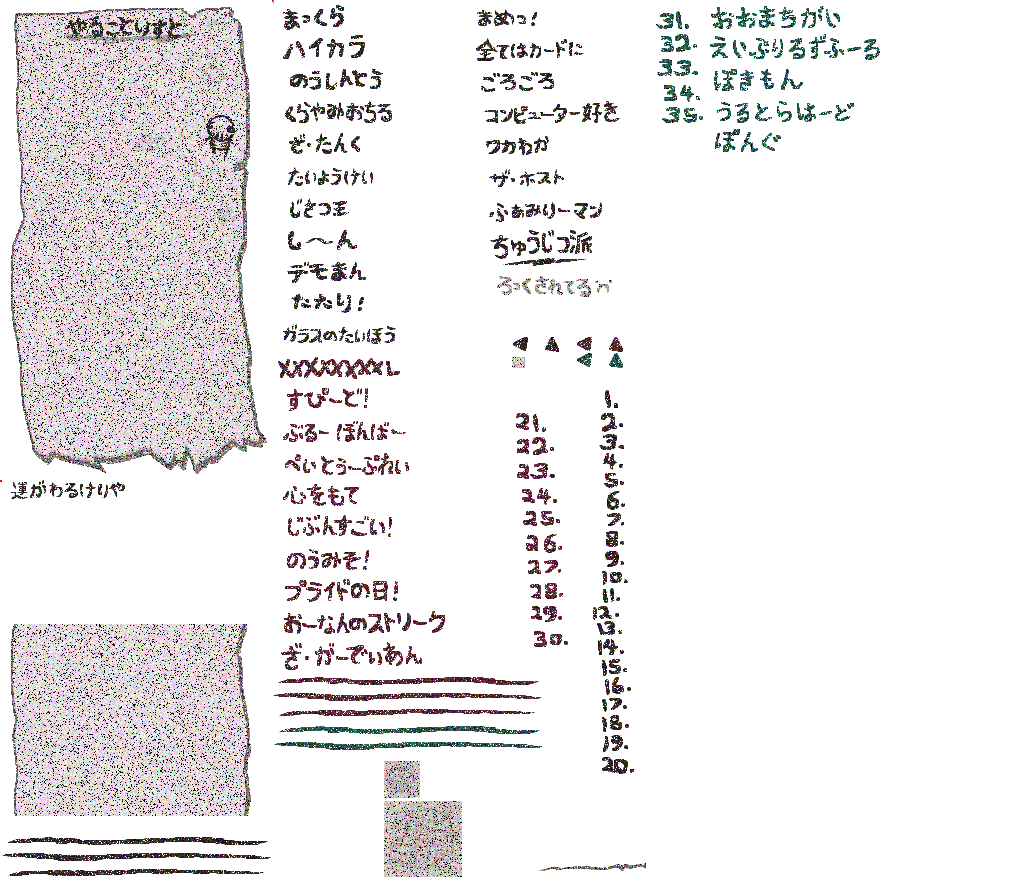 やることりすと
運がわるけりゃ
まっくら
ハイカラ
のうしんとう
くらやみおちる
ざ・たんく
たいようけい
じさつ王
し〜ん
デモまん
たたり!
ガラスのたいほう
XXXXXXXXL
すぴーど!
ぶるーぼんばー
ぺいとぅーぷれい
心をもて
じぶんすごい!
のうみそ!
プライドの日!
おーなんのストリーク
ざ・がーでぃあん
まめっ!
全てはカードに
ごろごろ
コンピューター好き
ワカわか
ザ・ホスト
ふぁみりーマン
ちゅうじつ派
ろっくされてる"n"
21.
22.
23.
24.
25.
26.
27.
28.
29.
30.
1.
2.
3.
4.
5.
6.
7.
8.
9.
10.
11.
12.
13.
14.
15.
16.
17.
18.
19.
20.
31.
32.
33.
34.
35.
おおまちがい
えいぷりるずふーる
ぽきもん
うるとらはーど
ぽんぐ